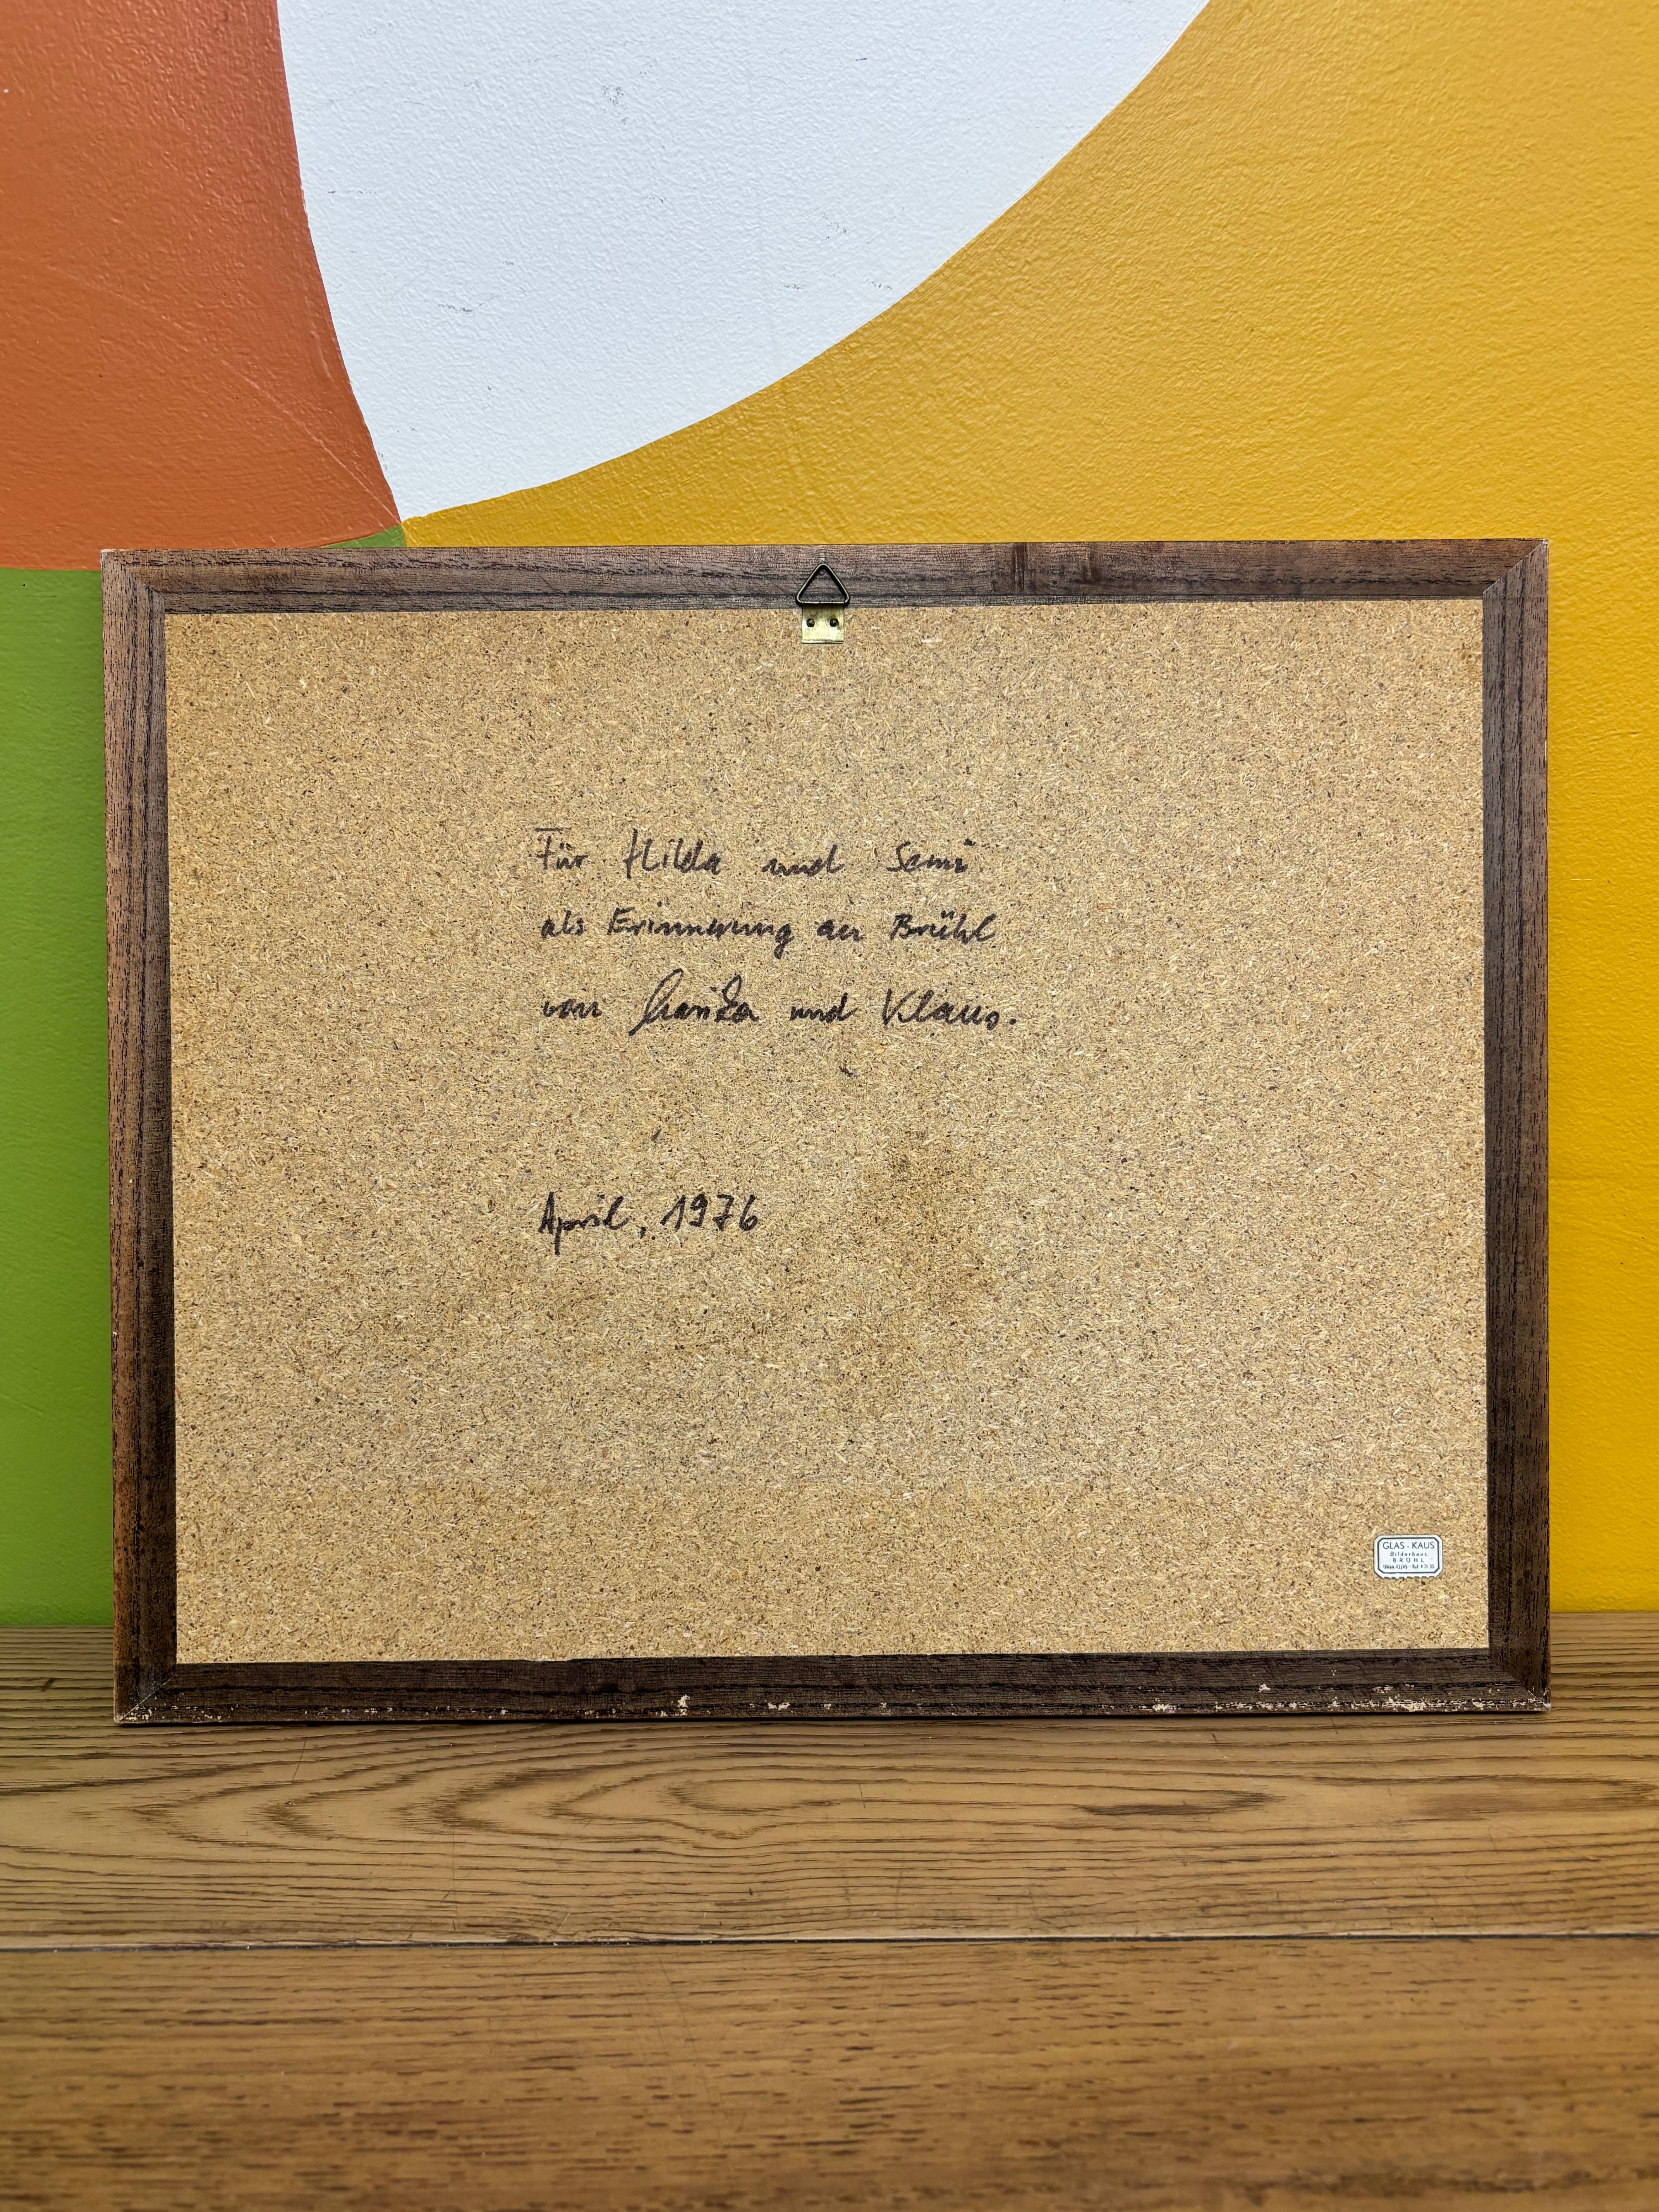 Für Hilda und Sami
als Erinnerung an Brühl
von und Klaus.
April, 1976
GLAS - KAUS
Bilderhaus
BRÜHL